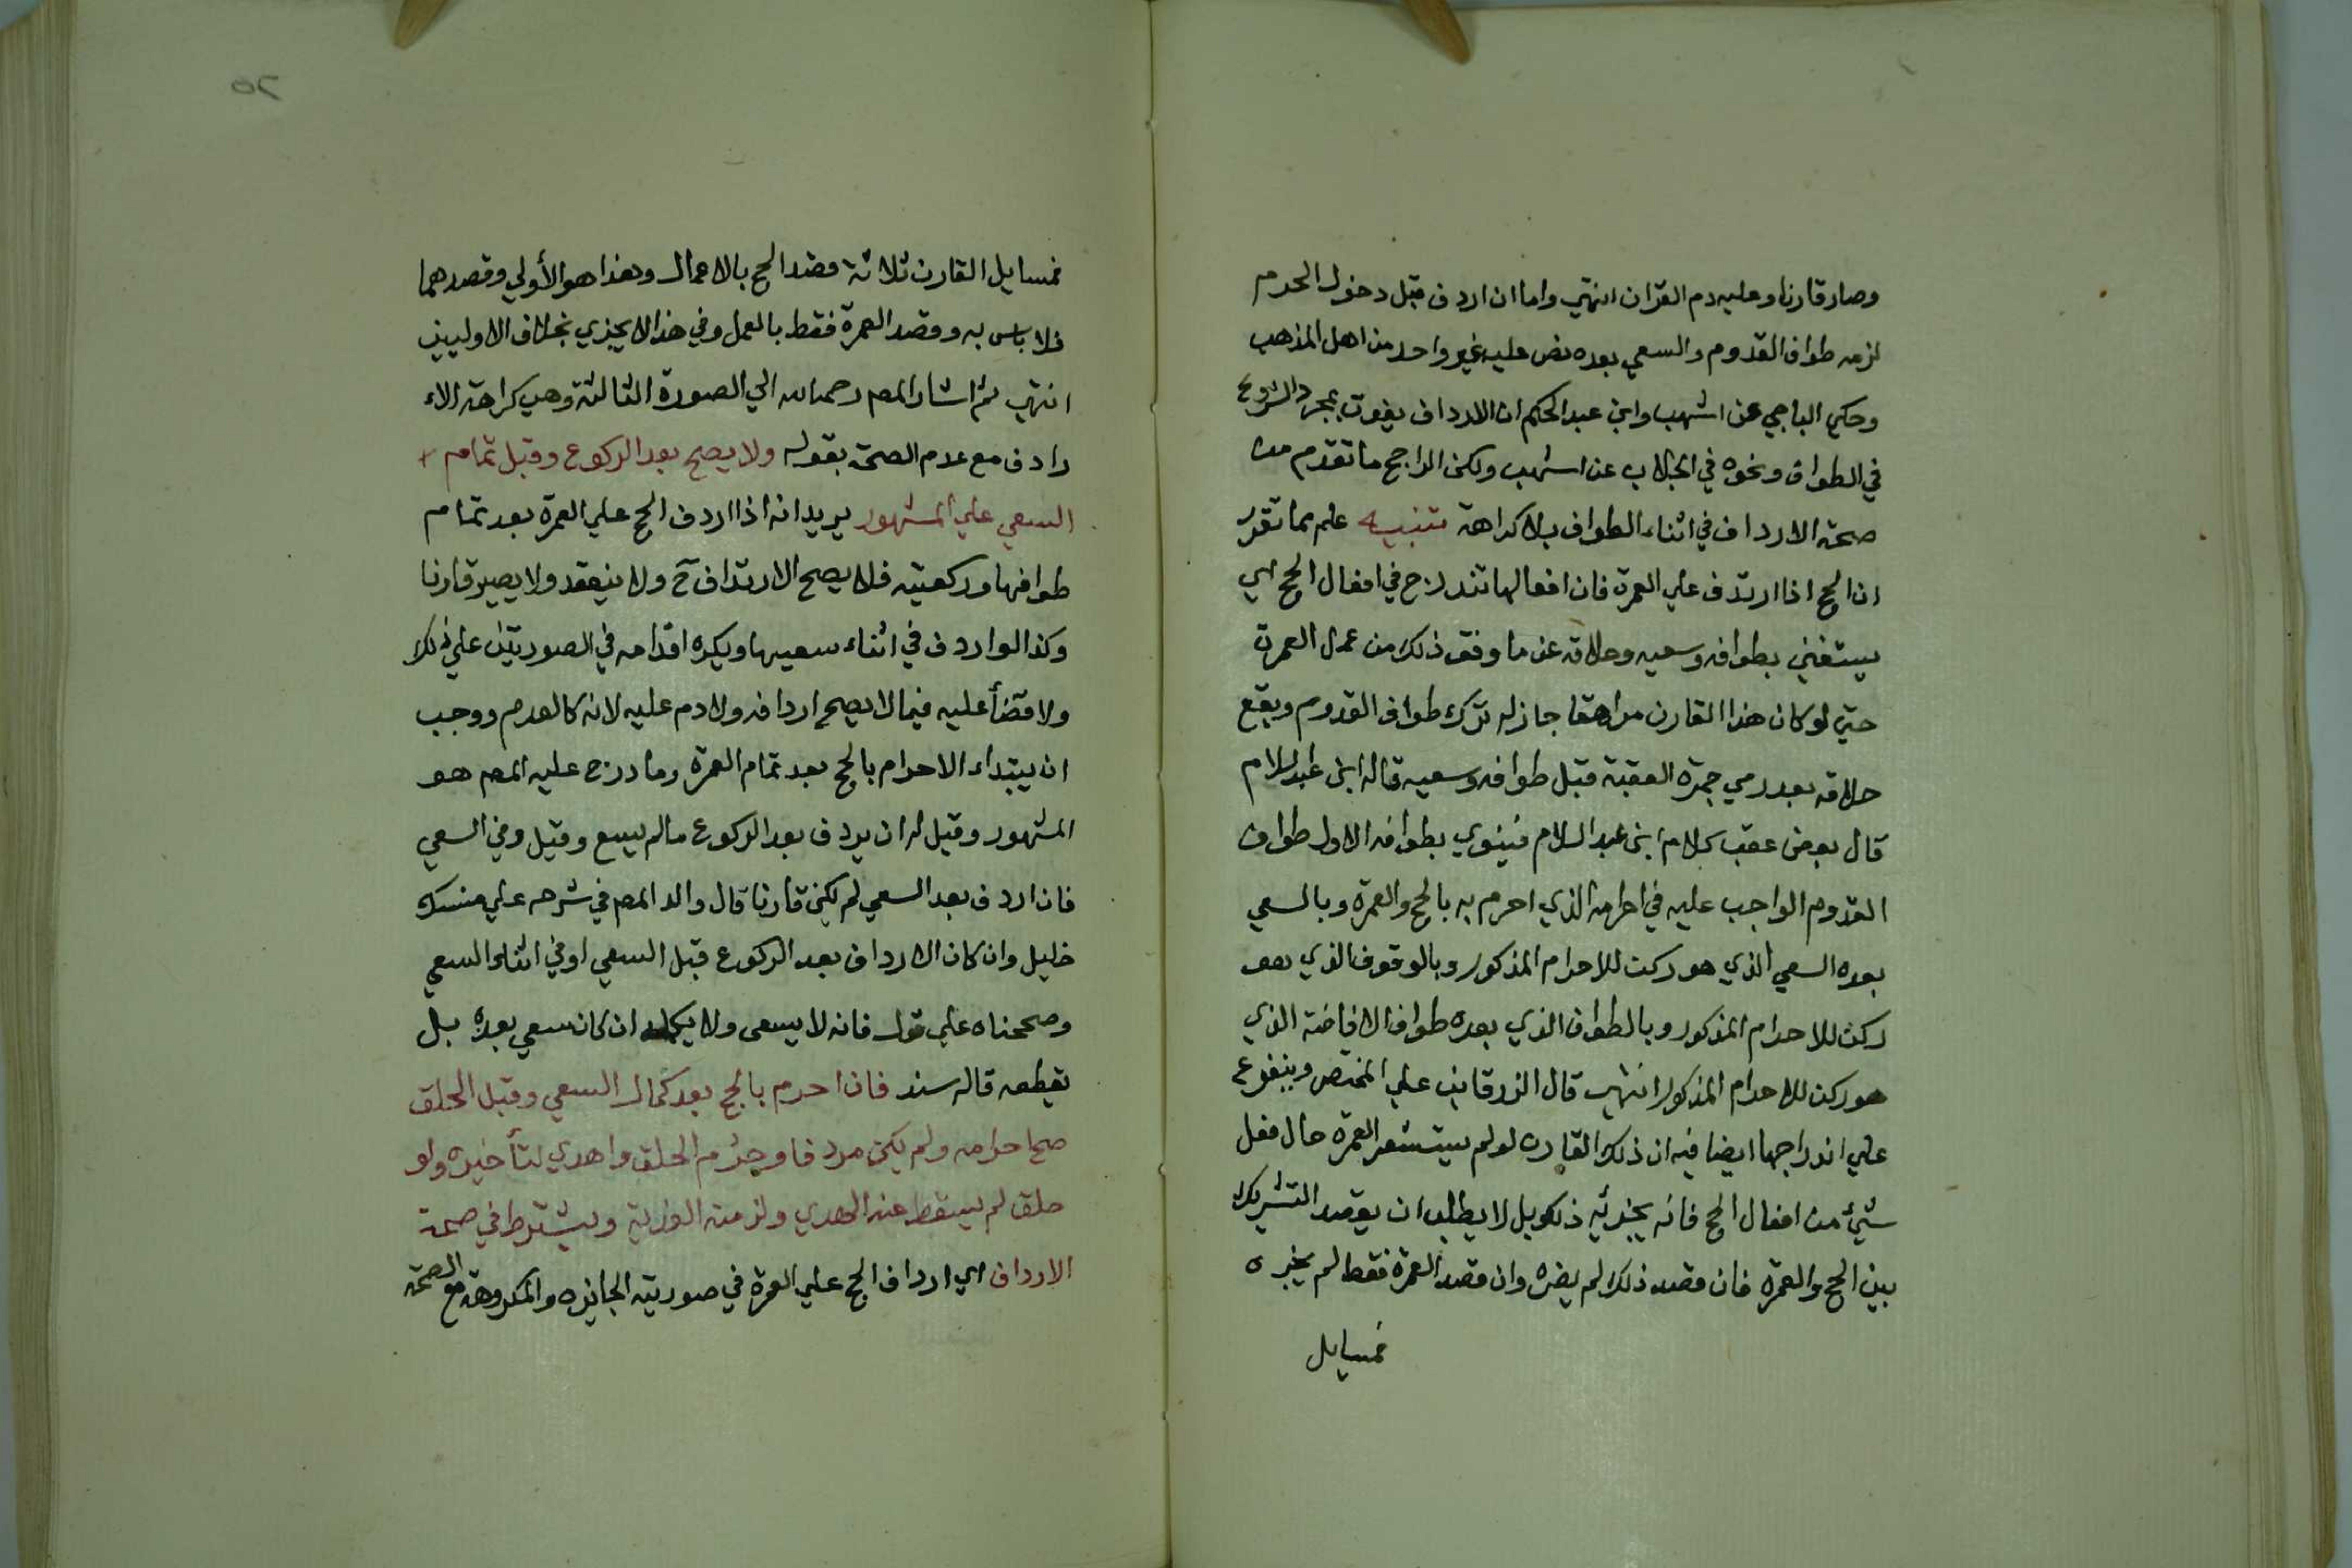 وصار قارنا وعليه دم القران انتهي واما ان اردف قبل دخول الحرم
لزمه طواف القدوم والسعي بعده نص عليه غير واحد من اهل المذهب
وحكي الباجي عن اشهب وابن عبد الحكم ان الارداف يفوت بمجرد الشروع
في الطواف ونحوه في الجلاب عن اشهب ولكن الراجح ما تقدم من
صحة الارداف في اثناء الطواف بلا كراهة تنبيه علم مما تقرر
ان الحج اذا ارتدف علي العمرة فان افعالها تندرج في افعال الحج اي
يستغني بطوافه وسعيه وحلاقه عن ما وفق ذلك من عمل العمرة
حتي لو كان هذا القارن مراهقا جاز له ترك طواف القدوم ويقع
حلاقه بعد رمي جمرة العقبة قبل طوافه وسعيه قاله ابن عبد السلام
قال بعض عقب كلام ابن عبد السلام فينوي بطوافه الاول طواف
القدوم الواجب عليه في احرامه الذي احرم به بالحج والعمرة وبالسعي
بعده السعي الذي هو ركن للاحرام المذكور وبالوقوف الذي هو
ركن للاحرام المذكور وبالطواف الذي بعده طواف الافاضة الذي
هو ركن للاحرام المذكور انتهي قال الزرقاني علي المختصر ويتفرع
علي اندراجها ايضا فيه ان ذلك القارن لو لم يستشعر العمرة حال فعل
شيئ من افعال الحج فانه يجزئه ذلك بل لا يطلب ان يقصد التشريك
بين الحج والعمرة فان قصد ذلك لم يضره وان قصد العمرة فقط لم يجزه
فمسايل
٢٥
فمسايل القارن ثلاثة قصد الحج بالاعمال وهذا هو الأولي وقصدهما
فلا باس به وقصد العمرة فقط بالعمل وفي هذا لا يجزي بخلاف الاوليين
انتهي ثم اشار المص رحمه الله الي الصورة الثالثة وهي كراهة الا
رادف مع عدم الصحة بقوله ولا يصح بعد الركوع وقبل تمام
السعي علي المشهور يريد انه اذا اردف الحج علي العمرة بعد تمام
طوافها وركعتيه فلا يصح الارتداف ح ولا ينعقد ولا يصير قارنا
وكذا لو اردف في اثناء سعيها ويكره اقدامه في الصورتين علي ذلك
ولا قضأ عليه فيما لا يصح اردافه ولا دم عليه لانه كالعدم ووجب
ان يبتداء الاحرام بالحج بعد تمام العمرة وما درج عليه المص هو
المشهور وقيل له ان يردف بعد الركوع ما لم يسع وقيل وفي السعي
فان اردف بعد السعي لم يكن قارنا قال والد المص في شرحه علي منسك
خليل وان كان الارداف بعد الركوع قبل السعي او في اثناء السعي
وصححناه علي قول فانه لا يسعي ولا يكمله ان كان سعي بعده بل
يقطعه قاله سند فان احرم بالحج بعد كمال السعي وقبل الحلق
صح احرامه ولم يكن مردفا وحرم الحلق واهدي لتأخيره ولو
حلق لم يسقط عنه الهدي ولزمته الفدية ويشترط في صحة
الارداف اي ارداف الحج علي العمرة في صورتيه الجائزه والمكروهة مع الصحة